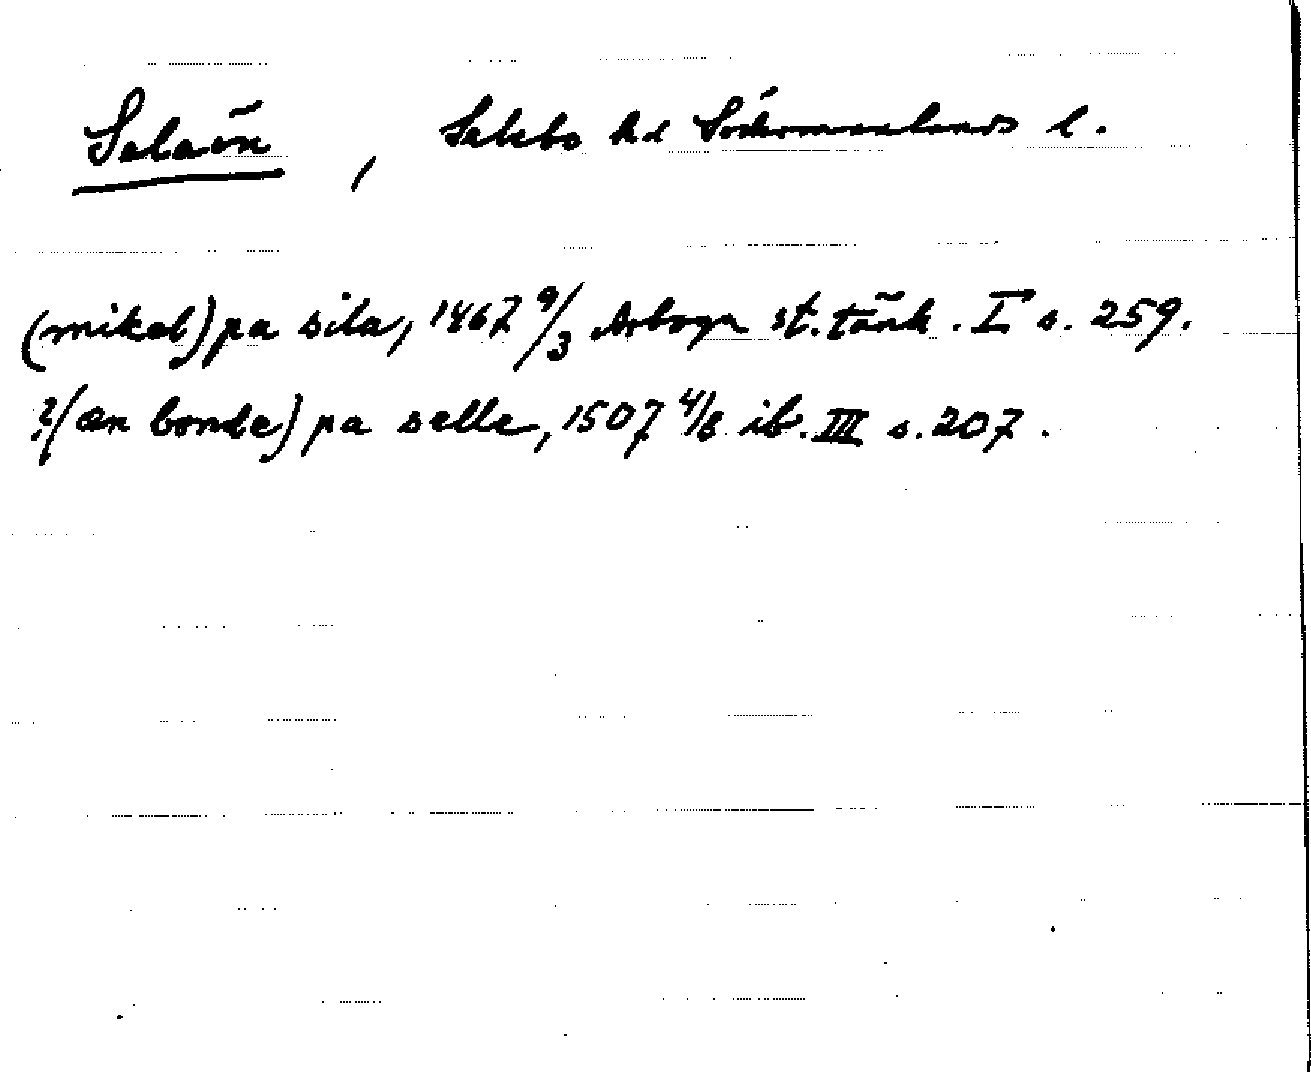 Selaön, Selebo hd Södermanlands l.
(mikel) pa sila, 1467 9/3 Arboga st. tänk. I s. 259.
?(en bonde) pa selle, 1507 4/8 ib. III s. 207.